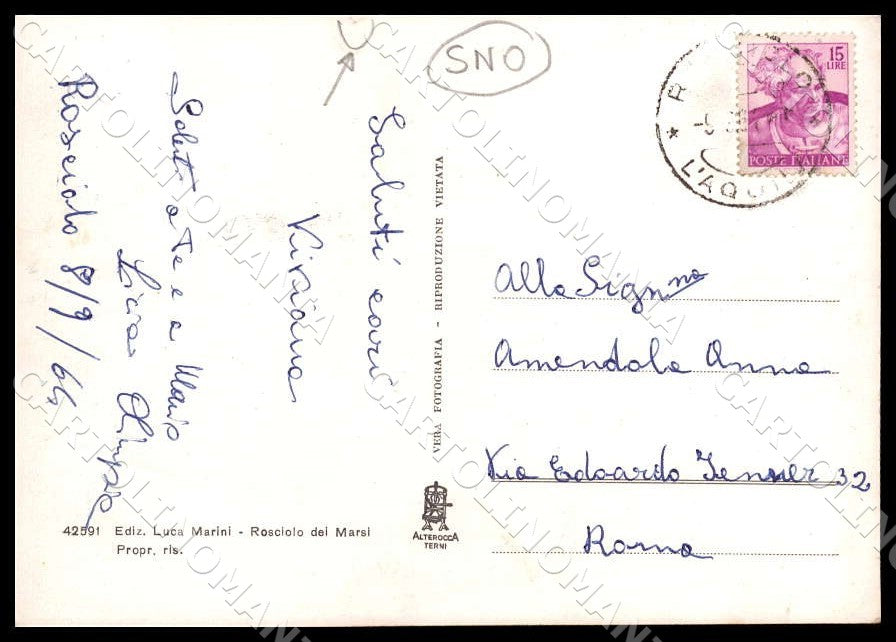 SNO
15
LIRE
POSTE ITALIANE
L'AQUILA
Saluti cari
Viviana
Saluti a Te e a Mario
Licia
Rosciolo 8/9/64
VERA FOTOGRAFIA - RIPRODUZIONE VIETATA
Alla Sign.na
Amendola Anna
Via Edoardo Jenner 32
Roma
42591 Ediz. Luca Marini - Rosciolo dei Marsi
Propr. ris.
ALTEROCCA
TERNI
CARTOLINOMANIA